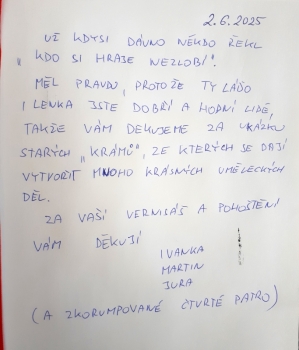 2.6.2025
UŽ KDYSI DÁVNO NĚKDO ŘEKL
„KDO SI HRAJE NEZLOBÍ".
MĚL PRAVDU, PROTOŽE TY LÁĎO
I LENKA JSTE DOBŘÍ A HODNÍ LIDÉ,
TAKŽE VÁM DĚKUJEME ZA UKÁZKU
STARÝCH „KRÁMŮ", ZE KTERÝCH SE DAJÍ
VYTVOŘIT MNOHO KRÁSNÝCH UMĚLECKÝCH
DĚL.
ZA VAŠÍ VERNISÁŽ A POHOŠTĚNÍ
VÁM DĚKUJÍ
IVANKA
MARTIN
JURA
(A ZKORUMPOVANÉ ČTVRTÉ PATRO)